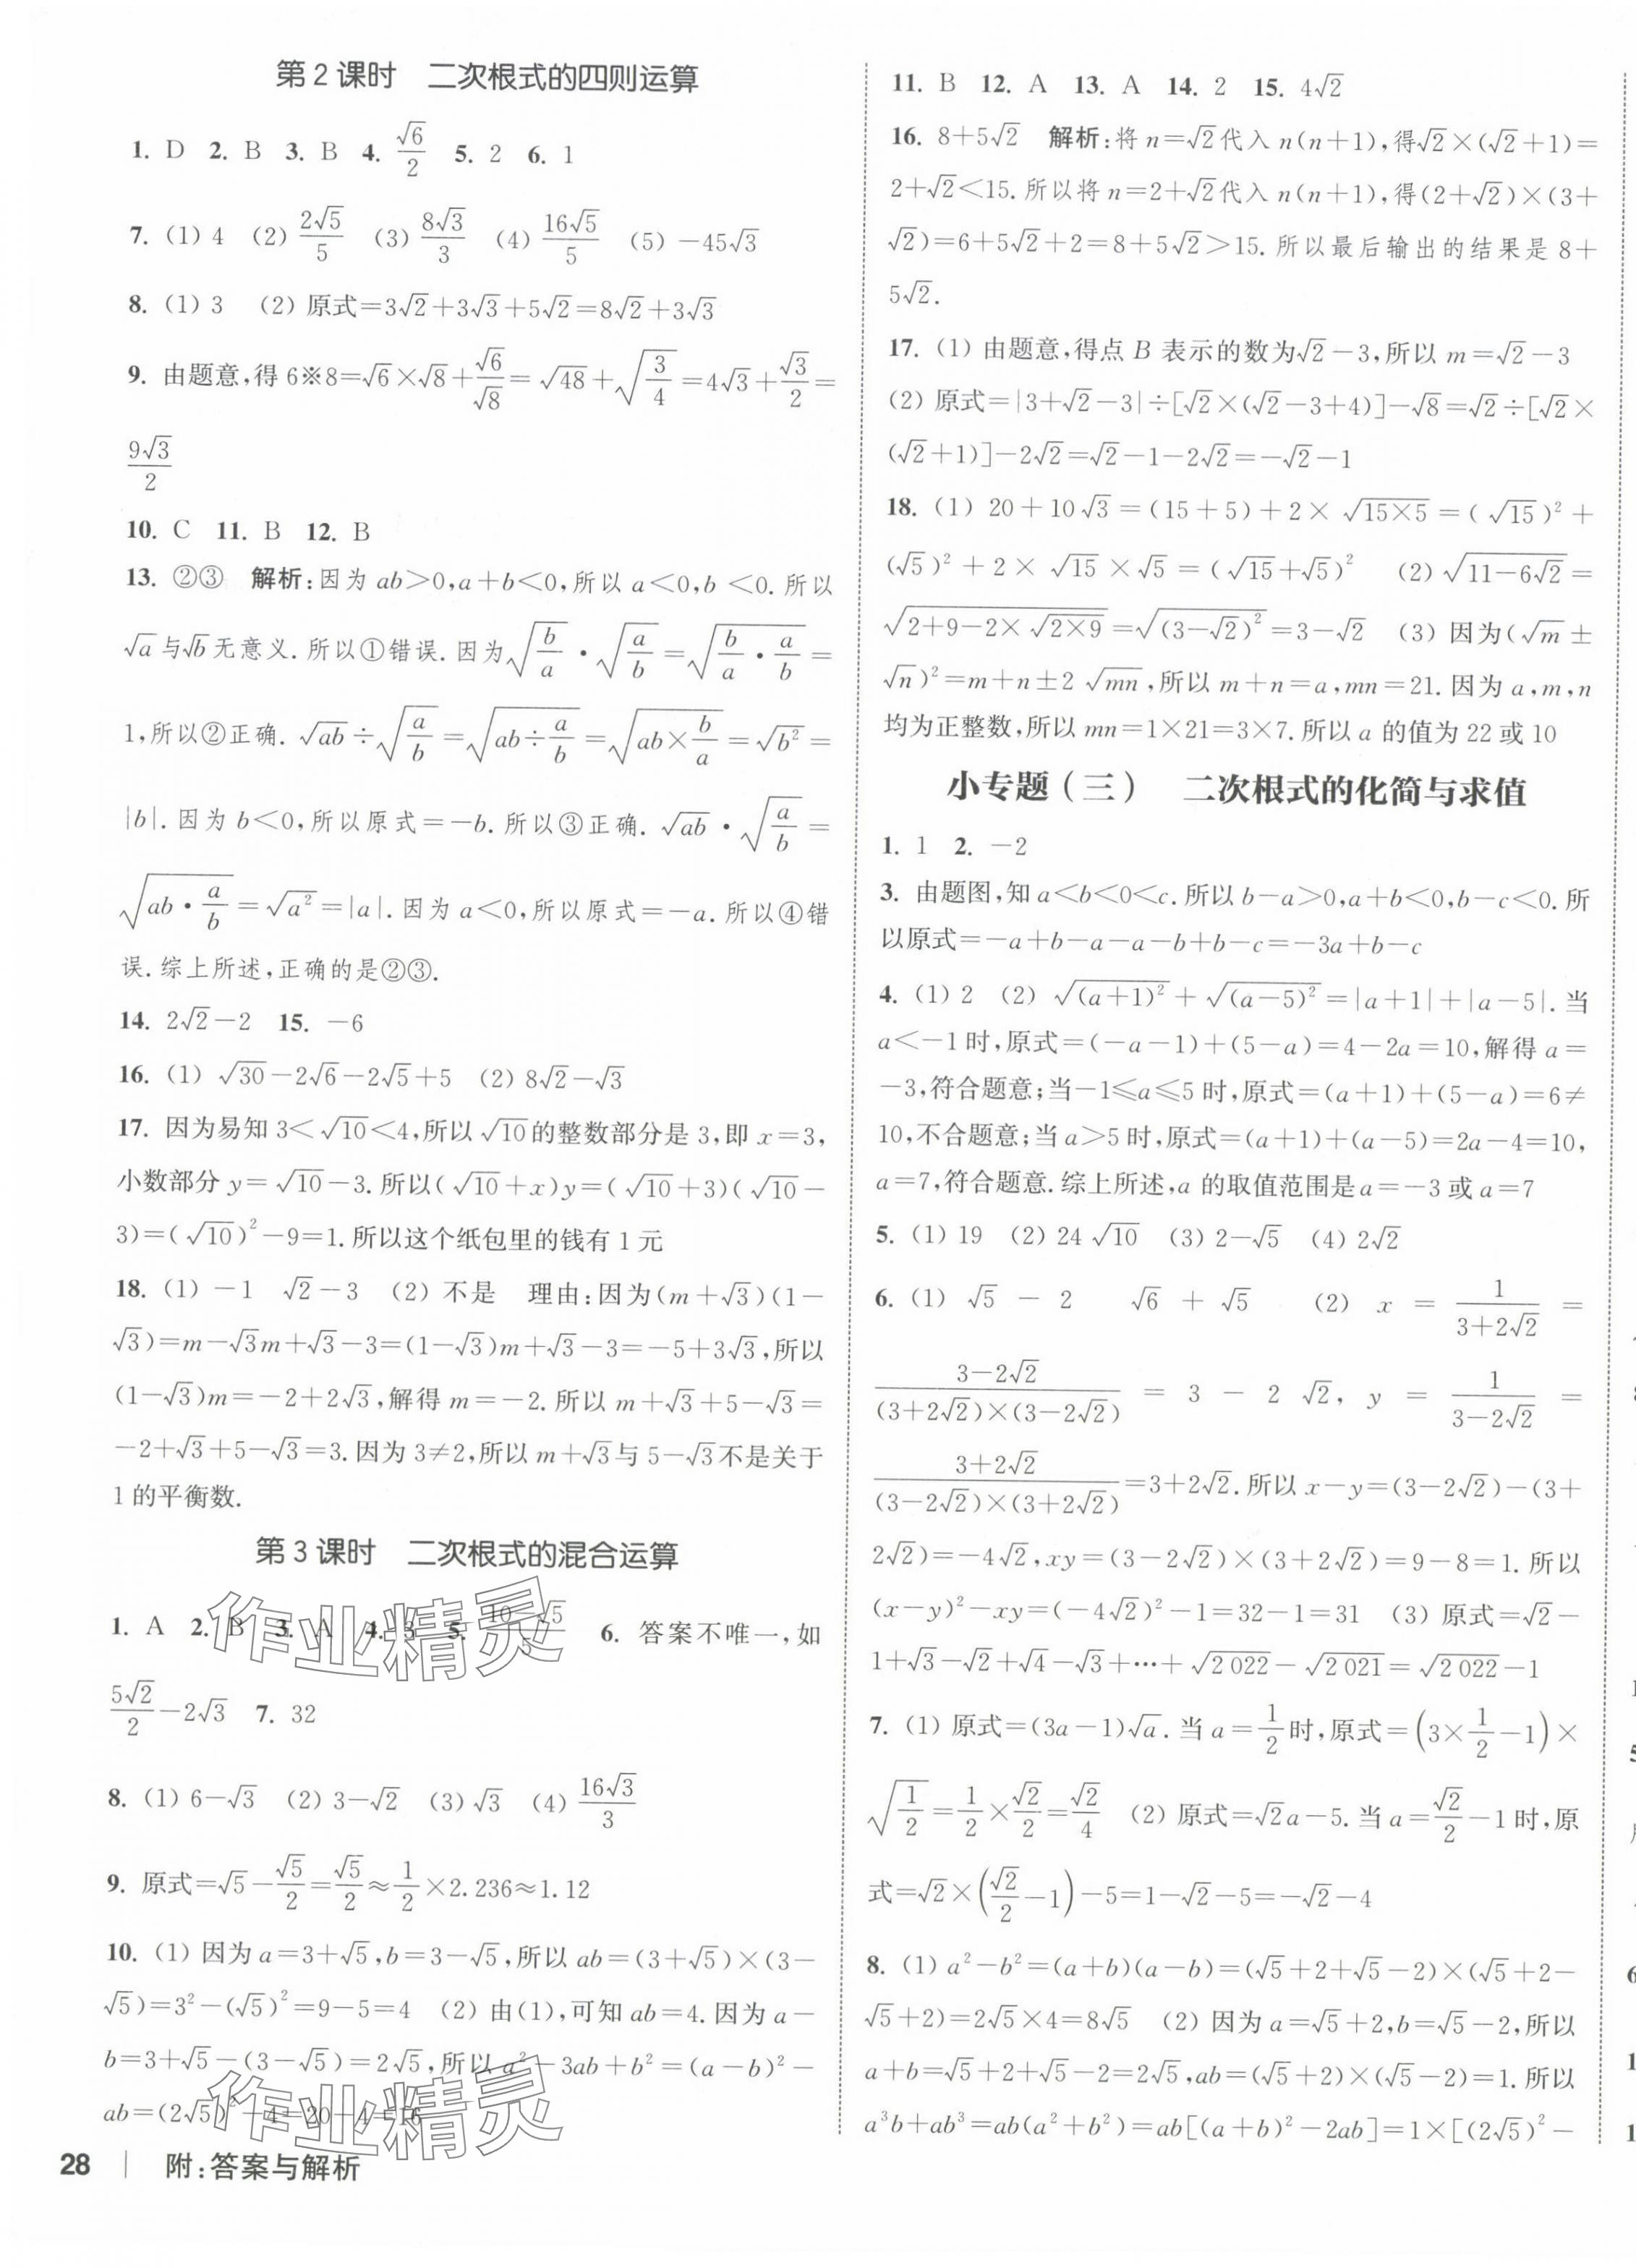 第2课时　二次根式的四则运算
1. D　2. B　3. B　4. √6/2　5. 2　6. 1
7. (1) 4　(2) 2√5/5　(3) 8√3/3　(4) 16√5/5　(5) －45√3
8. (1) 3　(2) 原式＝3√2＋3√3＋5√2＝8√2＋3√3
9. 由题意,得 6※8＝√6×√8＋√6/√8＝√48＋√(3/4)＝4√3＋√3/2＝
9√3/2
10. C　11. B　12. B
13. ②③　解析:因为 ab＞0,a＋b＜0,所以 a＜0,b＜0. 所以
√a与√b无意义. 所以①错误. 因为√(b/a)·√(a/b)＝√(b/a·a/b)＝
1,所以②正确. √(ab)÷√(a/b)＝√(ab÷a/b)＝√(ab×b/a)＝√(b²)＝
|b|. 因为 b＜0,所以原式＝－b. 所以③正确. √(ab)·√(a/b)＝
√(ab·a/b)＝√(a²)＝|a|. 因为 a＜0,所以原式＝－a. 所以④错
误. 综上所述,正确的是②③.
14. 2√2－2　15. －6
16. (1) √30－2√6－2√5＋5　(2) 8√2－√3
17. 因为易知 3＜√10＜4,所以√10的整数部分是 3,即 x＝3,
小数部分 y＝√10－3. 所以(√10＋x)y＝(√10＋3)(√10－
3)＝(√10)²－9＝1. 所以这个纸包里的钱有 1 元
18. (1) －1　√2－3　(2) 不是　理由:因为(m＋√3)(1－
√3)＝m－√3m＋√3－3＝(1－√3)m＋√3－3＝－5＋3√3,所以
(1－√3)m＝－2＋2√3,解得 m＝－2. 所以 m＋√3＋5－√3＝
－2＋√3＋5－√3＝3. 因为 3≠2,所以 m＋√3与 5－√3不是关于
1 的平衡数.
第3课时　二次根式的混合运算
1. A　2. B　3. A　4. 3　5.　6. 答案不唯一,如
5√2/2－2√3　7. 32
8. (1) 6－√3　(2) 3－√2　(3) √3　(4) 16√3/3
9. 原式＝√5－√5/2＝√5/2≈1/2×2.236≈1.12
10. (1) 因为 a＝3＋√5,b＝3－√5,所以 ab＝(3＋√5)×(3－
√5)＝3²－(√5)²＝9－5＝4　(2) 由(1),可知 ab＝4. 因为 a－
b＝3＋√5－(3－√5)＝2√5,所以 a²－3ab＋b²＝(a－b)²－
ab＝(2√5)²－4＝20－4＝16
作业精灵
作业精灵
28　附:答案与解析
11. B　12. A　13. A　14. 2　15. 4√2
16. 8＋5√2　解析:将 n＝√2代入 n(n＋1),得√2×(√2＋1)＝
2＋√2＜15. 所以将 n＝2＋√2代入 n(n＋1),得(2＋√2)×(3＋
√2)＝6＋5√2＋2＝8＋5√2＞15. 所以最后输出的结果是 8＋
5√2.
17. (1) 由题意,得点 B 表示的数为√2－3,所以 m＝√2－3
(2) 原式＝|3＋√2－3|÷[√2×(√2－3＋4)]－√8＝√2÷[√2×
(√2＋1)]－2√2＝√2－1－2√2＝－√2－1
18. (1) 20＋10√3＝(15＋5)＋2×√(15×5)＝(√15)²＋
(√5)²＋2×√15×√5＝(√15＋√5)²　(2) √(11－6√2)＝
√(2＋9－2×√(2×9))＝√((3－√2)²)＝3－√2　(3) 因为(√m±
√n)²＝m＋n±2√(mn),所以 m＋n＝a,mn＝21. 因为 a,m,n
均为正整数,所以 mn＝1×21＝3×7. 所以 a 的值为 22 或 10
小专题(三)　二次根式的化简与求值
1. 1　2. －2
3. 由题图,知 a＜b＜0＜c. 所以 b－a＞0,a＋b＜0,b－c＜0. 所
以原式＝－a＋b－a－a－b＋b－c＝－3a＋b－c
4. (1) 2　(2) √((a＋1)²)＋√((a－5)²)＝|a＋1|＋|a－5|. 当
a＜－1 时,原式＝(－a－1)＋(5－a)＝4－2a＝10,解得 a＝
－3,符合题意;当－1≤a≤5 时,原式＝(a＋1)＋(5－a)＝6≠
10,不合题意;当 a＞5 时,原式＝(a＋1)＋(a－5)＝2a－4＝10,
a＝7,符合题意. 综上所述,a 的取值范围是 a＝－3 或 a＝7
5. (1) 19　(2) 24√10　(3) 2－√5　(4) 2√2
6. (1) √5－2　√6＋√5　(2) x＝1/(3＋2√2)＝
(3－2√2)/((3＋2√2)×(3－2√2))＝3－2√2, y＝1/(3－2√2)＝
(3＋2√2)/((3－2√2)×(3＋2√2))＝3＋2√2. 所以 x－y＝(3－2√2)－(3＋
2√2)＝－4√2,xy＝(3－2√2)×(3＋2√2)＝9－8＝1. 所以
(x－y)²－xy＝(－4√2)²－1＝32－1＝31　(3) 原式＝√2－
1＋√3－√2＋√4－√3＋…＋√2 022－√2 021＝√2 022－1
7. (1) 原式＝(3a－1)√a. 当 a＝1/2时,原式＝(3×1/2－1)×
√(1/2)＝1/2×√2/2＝√2/4　(2) 原式＝√2a－5. 当 a＝√2/2－1 时,原
式＝√2×(√2/2－1)－5＝1－√2－5＝－√2－4
8. (1) a²－b²＝(a＋b)(a－b)＝(√5＋2＋√5－2)×(√5＋2－
√5＋2)＝2√5×4＝8√5　(2) 因为 a＝√5＋2,b＝√5－2,所以
a＋b＝√5＋2＋√5－2＝2√5,ab＝(√5＋2)×(√5－2)＝1. 所以
a³b＋ab³＝ab(a²＋b²)＝ab[(a＋b)²－2ab]＝1×[(2√5)²－